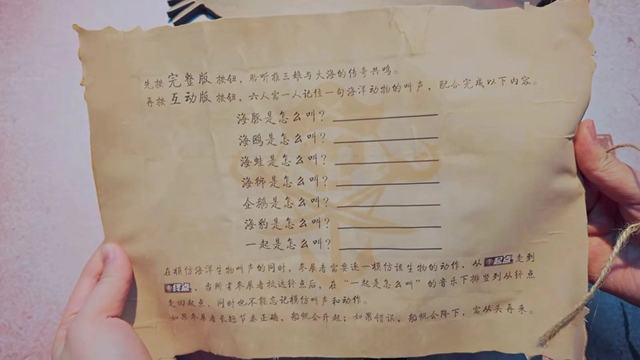 先按完整版按钮，聆听推三娘与大海的传奇共鸣。
再按互动版按钮，六人需一人记住一句海洋动物的叫声，配合完成以下内容。
海豚是怎么叫？
海鸥是怎么叫？
海蛙是怎么叫？
海狮是怎么叫？
企鹅是怎么叫？
海豹是怎么叫？
一起是怎么叫？
在模仿海洋生物叫声的同时，参展者需要逐一模仿该生物的动作，从起点走到
终点，当所有参展者抵达终点后，在“一起是怎么叫”的音乐下排竖列从终点
走回起点，同时也不能忘记模仿叫声和动作。
如果参展者答题节奏正确，船帆会升起；如果错误，船帆会降下，需从头再来。